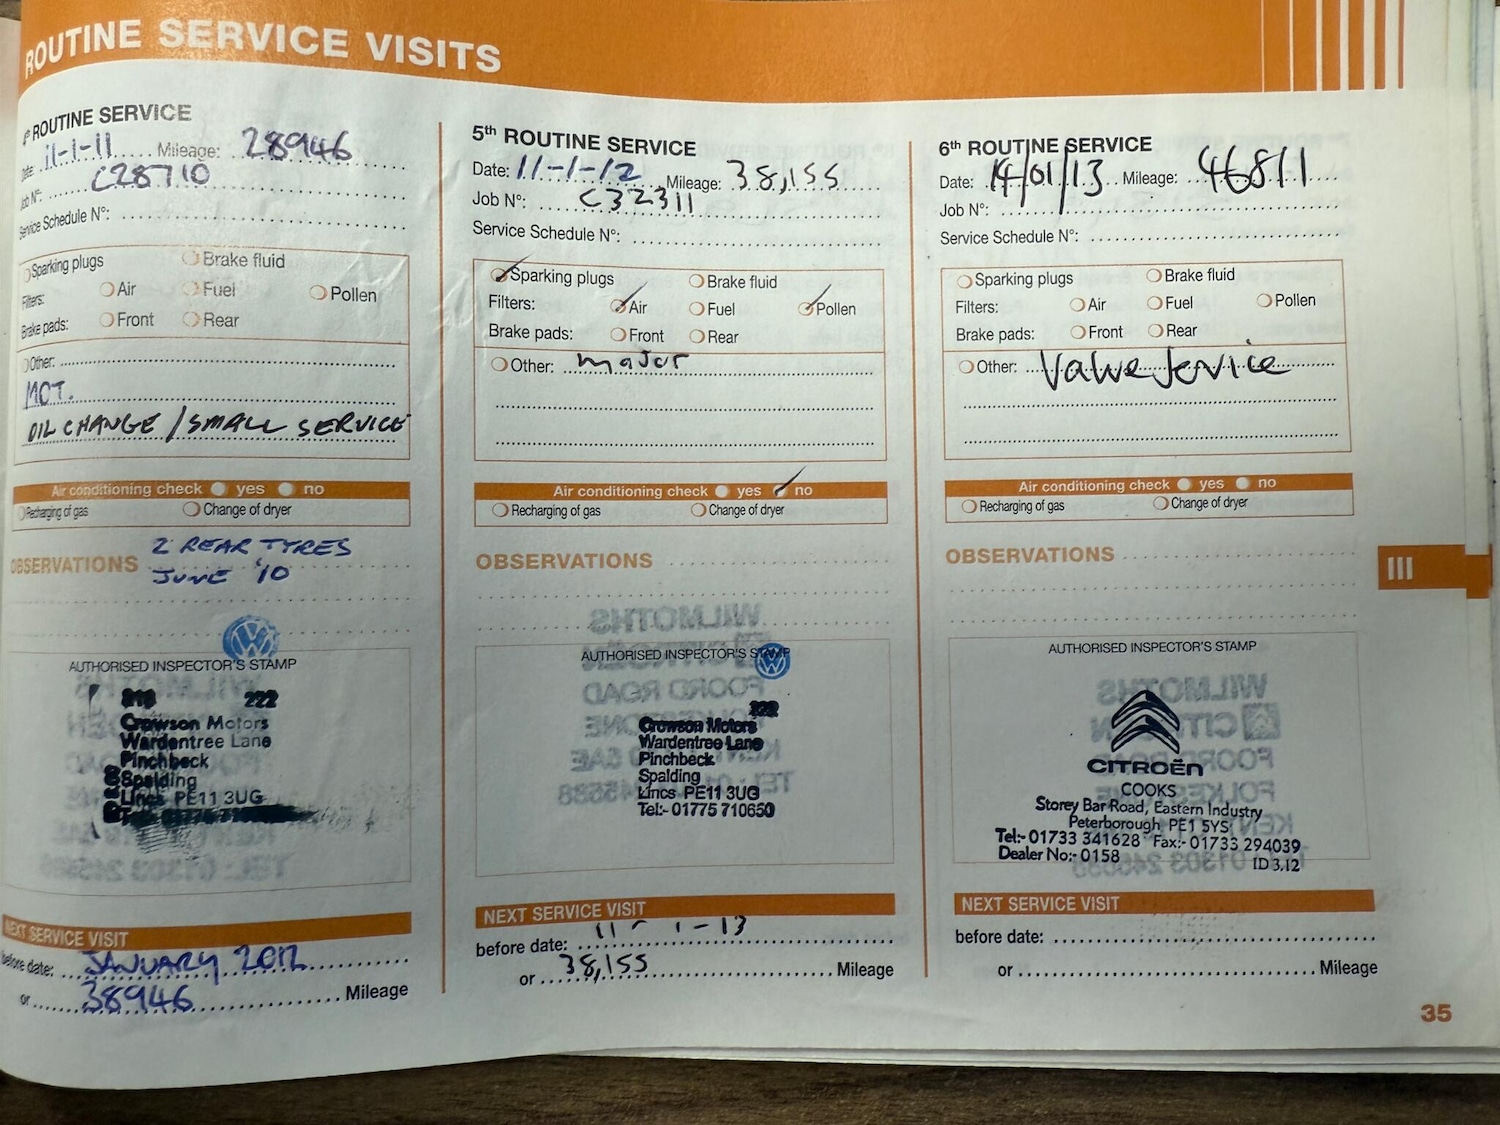 ROUTINE SERVICE VISITS
4th ROUTINE SERVICE
Date: 11-1-11 Mileage: 28946
Job N°: C28710
Service Schedule N°:
Sparking plugs Brake fluid
Filters: Air Fuel Pollen
Brake pads: Front Rear
Other:
MOT.
OIL CHANGE / SMALL SERVICE
Air conditioning check yes no
Recharging of gas Change of dryer
OBSERVATIONS 2 REAR TYRES
JUNE '10
AUTHORISED INSPECTOR'S STAMP
222
Crowson Motors
Wardentree Lane
Pinchbeck
Spalding
Lincs PE11 3UG
NEXT SERVICE VISIT
before date: JANUARY 2012
or 38946 Mileage
5th ROUTINE SERVICE
Date: 11-1-12 Mileage: 38,155
Job N°: C32311
Service Schedule N°:
Sparking plugs Brake fluid
Filters: Air Fuel Pollen
Brake pads: Front Rear
Other: major
Air conditioning check yes no
Recharging of gas Change of dryer
OBSERVATIONS
AUTHORISED INSPECTOR'S STAMP
222
Crowson Motors
Wardentree Lane
Pinchbeck
Spalding
Lincs PE11 3UG
Tel:- 01775 710650
NEXT SERVICE VISIT
before date: 11-1-13
or 38,155 Mileage
6th ROUTINE SERVICE
Date: 14/01/13 Mileage: 46811
Job N°:
Service Schedule N°:
Sparking plugs Brake fluid
Filters: Air Fuel Pollen
Brake pads: Front Rear
Other: Value Service
Air conditioning check yes no
Recharging of gas Change of dryer
OBSERVATIONS
III
AUTHORISED INSPECTOR'S STAMP
CITROËN
COOKS
Storey Bar Road, Eastern Industry
Peterborough PE1 5YS
Tel:- 01733 341628 Fax:- 01733 294039
Dealer No:- 0158 ID 3.12
NEXT SERVICE VISIT
before date:
or Mileage
35